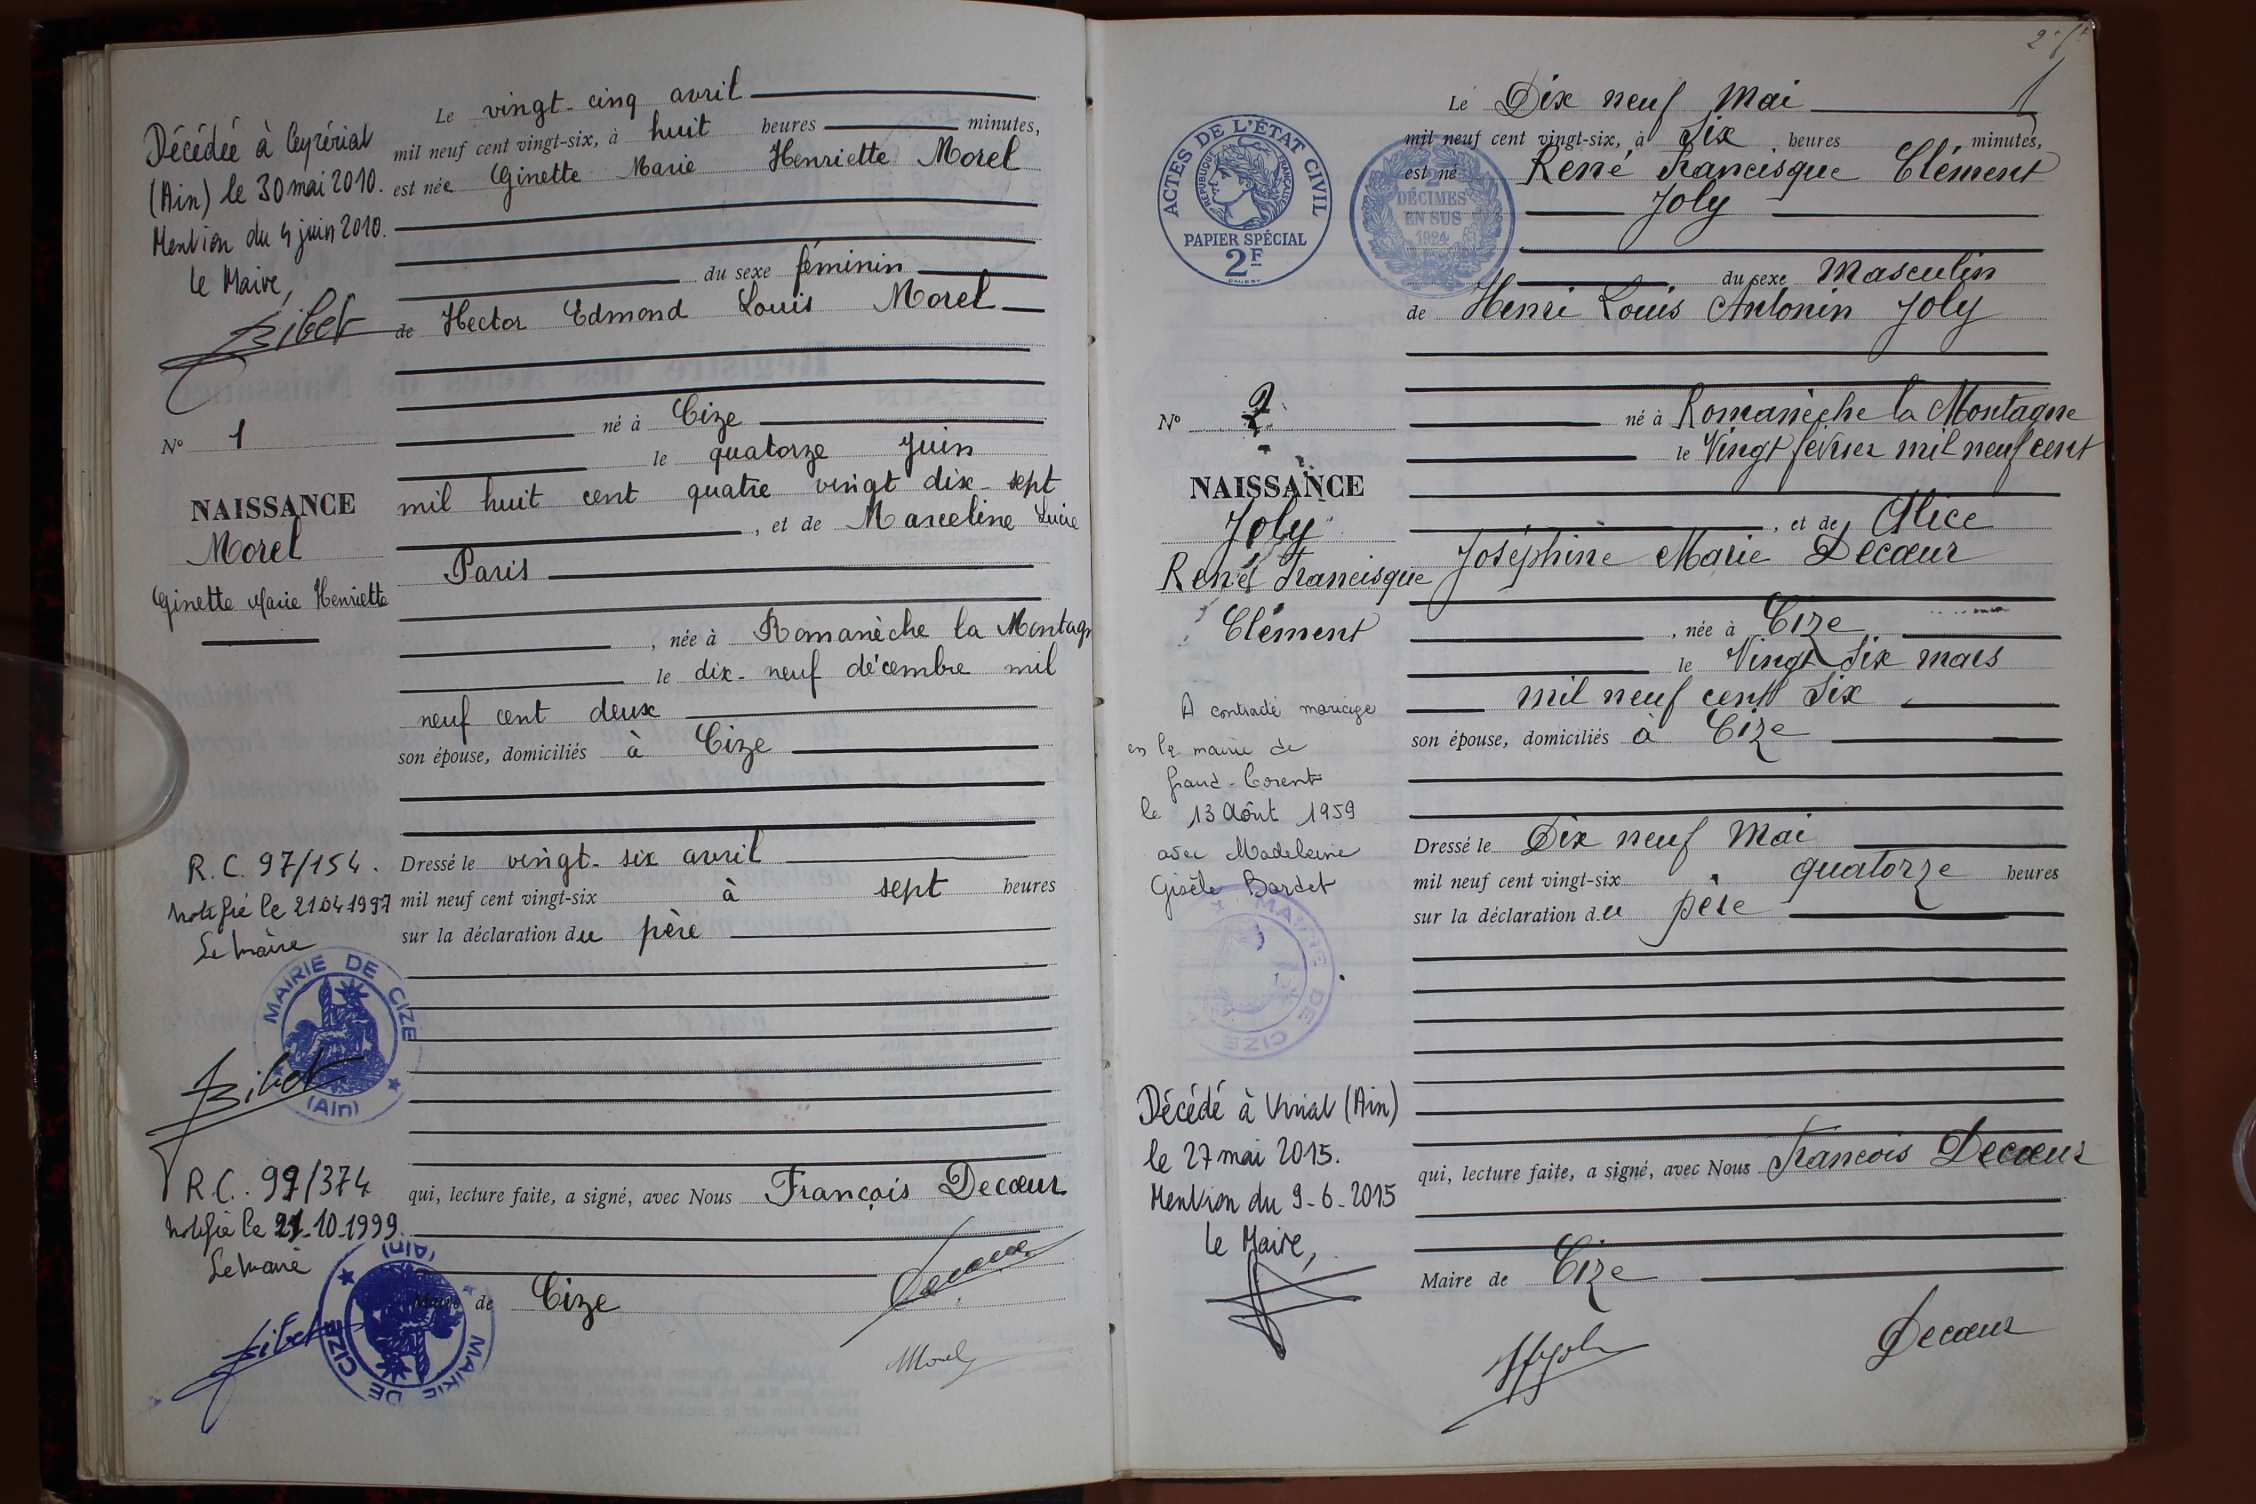 Décédée à Ceyzériat
(Ain) le 30 mai 2010.
Mention du 4 juin 2010.
le Maire,
Le vingt-cinq avril
mil neuf cent vingt-six, à huit heures minutes,
est née Ginette Marie Henriette Morel
du sexe féminin
de Hector Edmond Louis Morel
né à Cize
le quatorze Juin
mil huit cent quatre vingt dix-sept
, et de Marceline Lucie
Paris
, née à Romanèche la Montag
le dix-neuf décembre mil
neuf cent deux
son épouse, domiciliés à Cize
Dressé le vingt-six avril
mil neuf cent vingt-six à sept heures
sur la déclaration du père
qui, lecture faite, a signé, avec Nous François Decœur
Maire de Cize
Decœur
Morel
No 1
NAISSANCE
Morel
Ginette Marie Henriette
R.C. 97/154.
Notifié le 21.04.1997
Le Maire
MAIRIE DE CIZE
(Ain)
R.C. 99/374
Notifié le 21-10-1999
Le Maire
MAIRIE DE CIZE
(Ain)
Le Dix neuf Mai
mil neuf cent vingt-six, à Six heures minutes,
est né René Francisque Clément
Joly
du sexe Masculin
de Henri Louis Antonin Joly
né à Romanèche la Montagne
le Vingt février mil neuf cent
, et de Alice
Joséphine Marie Decœur
, née à Cize
le Vingt Six mars
mil neuf cent Six
son épouse, domiciliés à Cize
Dressé le Dix neuf Mai
mil neuf cent vingt-six quatorze heures
sur la déclaration du père
qui, lecture faite, a signé, avec Nous Francois Decœur
Maire de Cize
Decœur
ACTES DE L'ÉTAT CIVIL
RÉPUBLIQUE FRANÇAISE
PAPIER SPÉCIAL
2F
2
DÉCIMES
EN SUS
1924
No 2
NAISSANCE
Joly
René Francisque
Clément
A contracté mariage
en la mairie de
Grand-Corent
le 13 Août 1959
avec Madeleine
Gisèle Bardet
MAIRIE DE CIZE
Décédé à Viriat (Ain)
le 27 mai 2015.
Mention du 9-6-2015
le Maire,